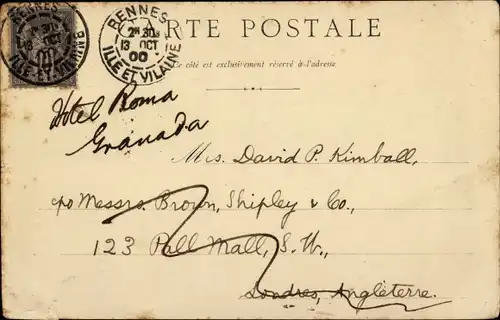 RENNES
ILLE ET VILAINE
RENNES
2E 30S
13 OCT
00
ILLE ET VILAINE
CARTE POSTALE
Ce côté est exclusivement réservé à l'adresse
Hotel Roma
Granada
Mrs. David P. Kimball,
c/o Messrs. Brown, Shipley & Co.,
123 Pall Mall, S. W.,
Londres, Angleterre.